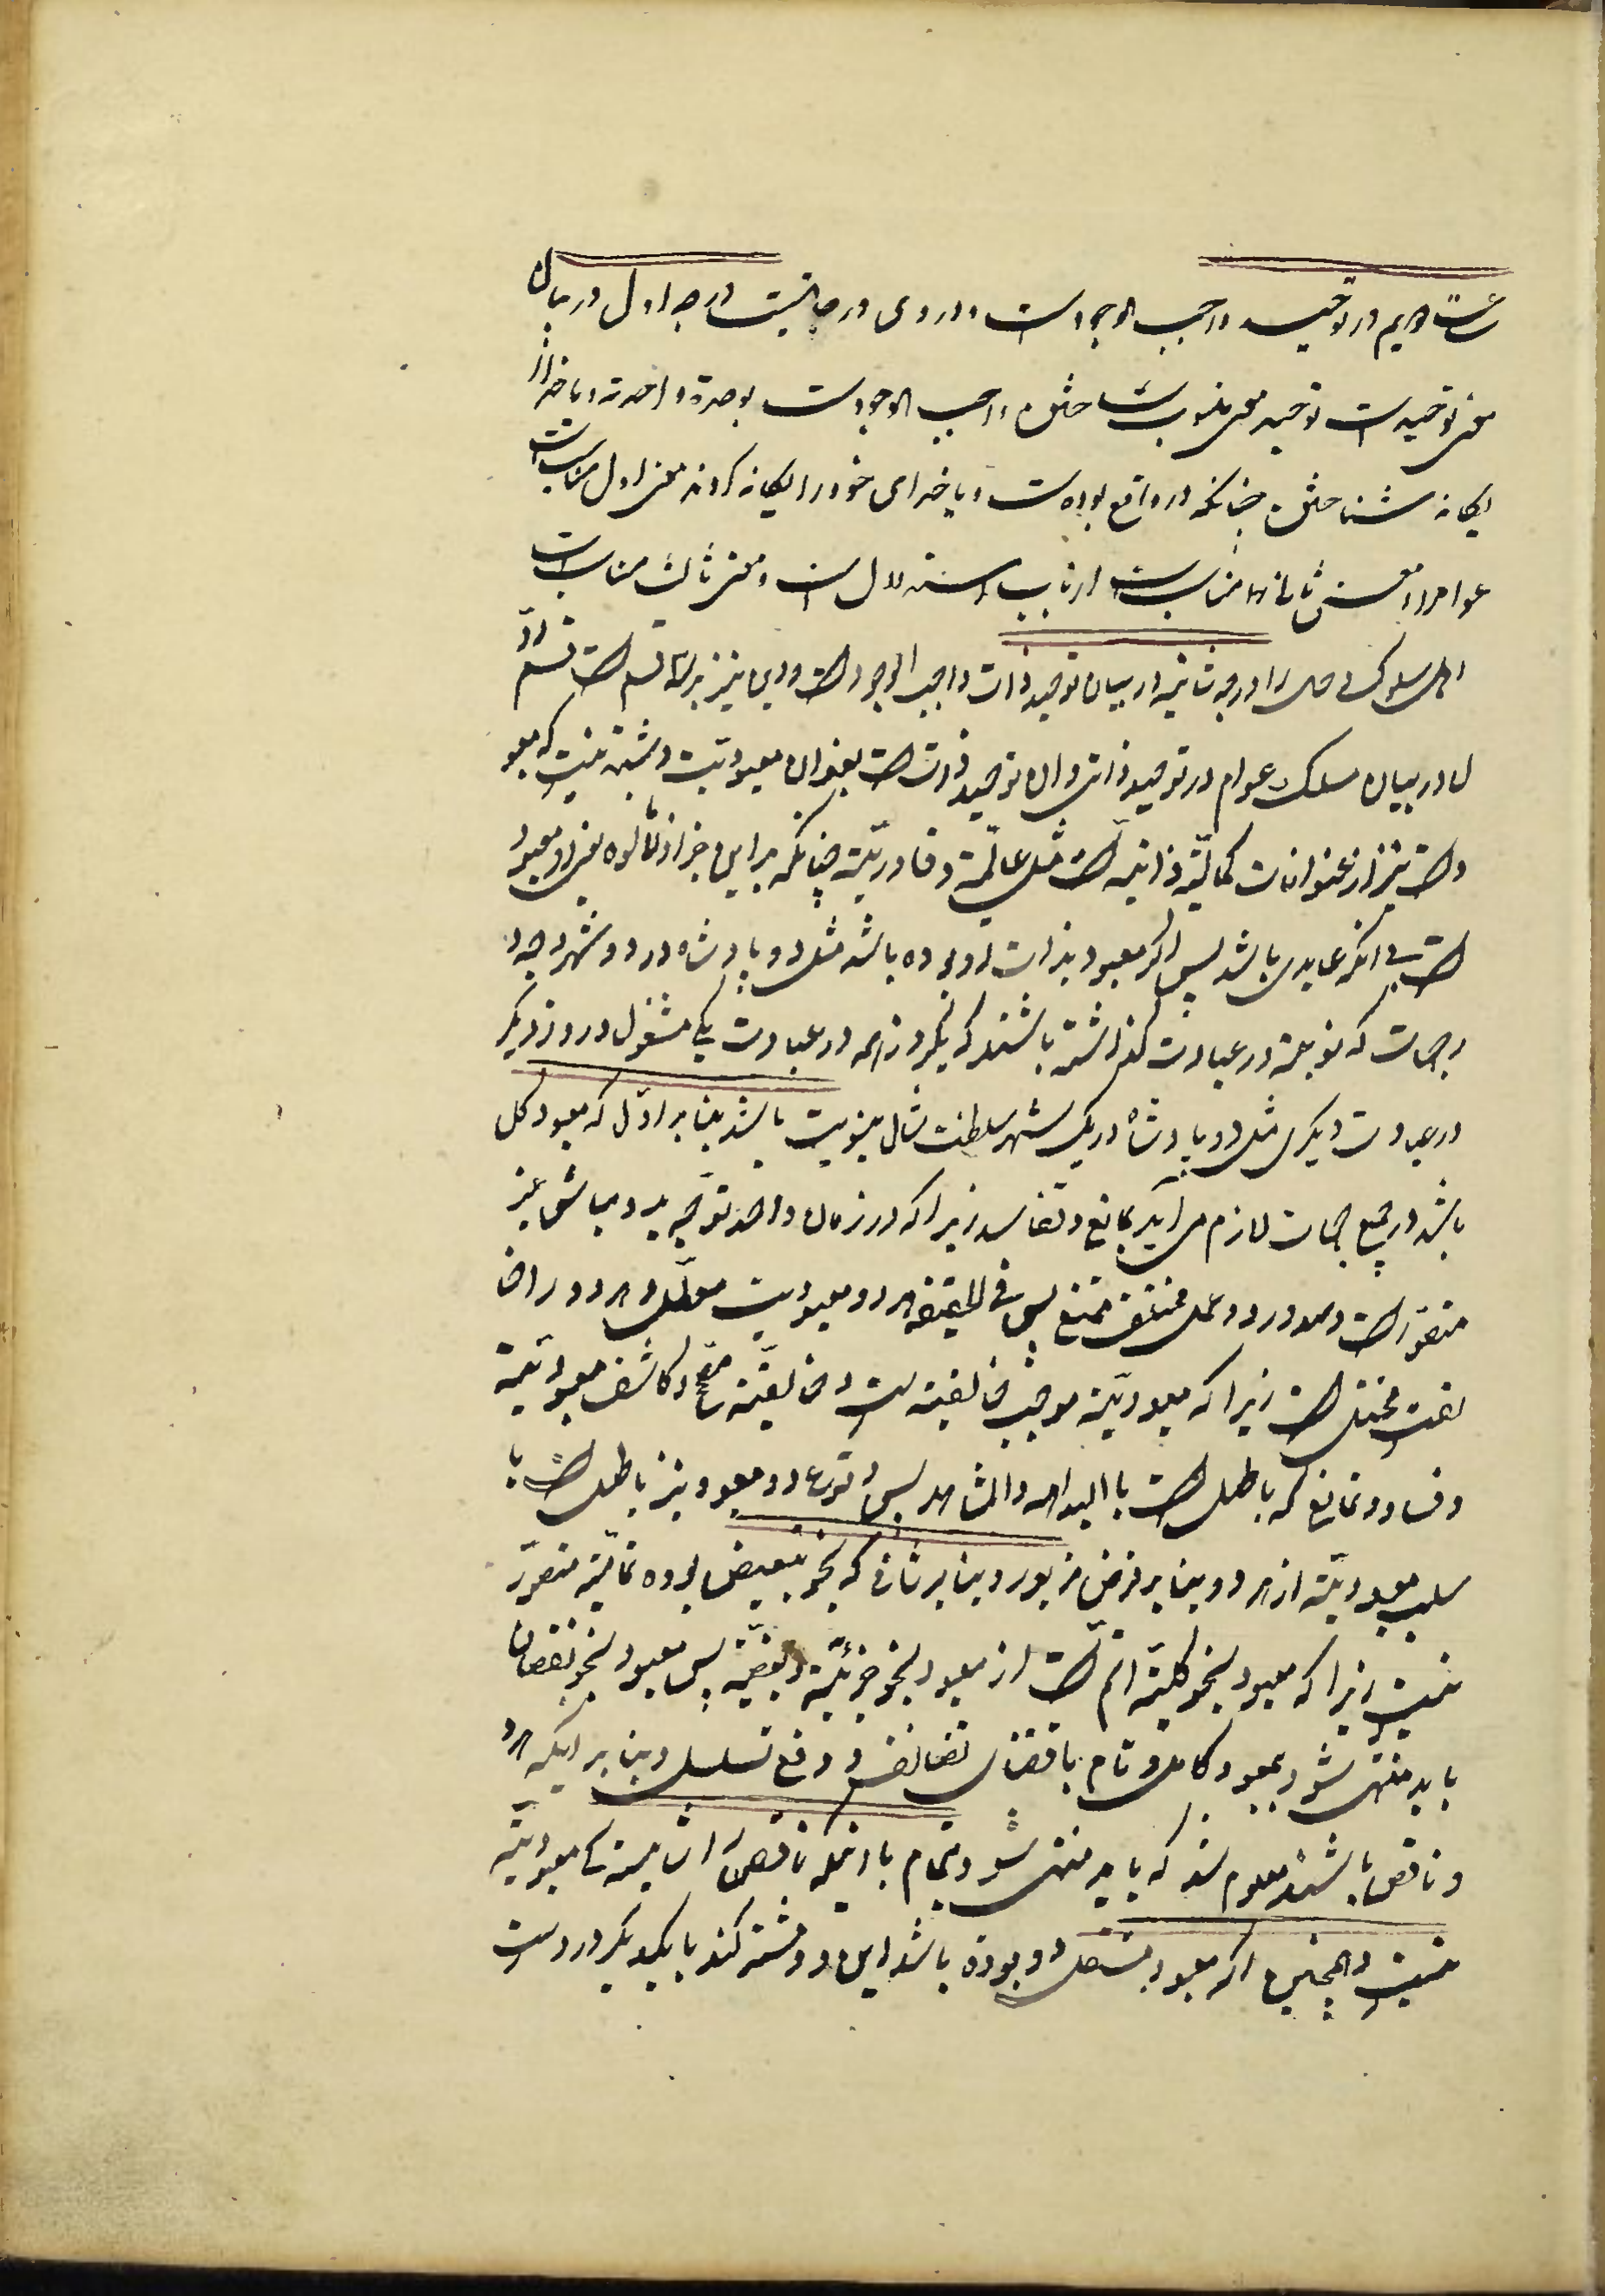 در توحید واجب الوجود است و در وی درجاتیست درجه اول در بیان
معنی توحید است توحید معنی شناختن واجب الوجود است بوحدة و احدیة و یا خدا را
یکانه شناختن چنانکه در واقع بوده است و یا خدای خود را یکانه کردن معنی اول مناسب است
عوام را و معنی ثانی مناسب ارباب استدلال است و معنی ثالث مناسب است
اهل سلوک و حال را درجه ثانیه در بیان توحید ذات واجب الوجود است و وی نیز بر قسم است قسم اوّ
ل در بیان مسلک عوام در توحید ذاتی و ان توحید ذات است بعنوان معبودیت و شبهه نیست که معبو
د است نیز از عنوانات کمالیّه ذاتیه است مثل عالمیّة و قادریّة چنانکه براهین یعنی او معبود
است بی انکه عابدی باشد پس اگر معبود بذات دو بوده باشد مثل دو پادشاه در دو شهر
جهات که نوبة در عبادت گذاشته باشند که یکروز همه در عبادت یکی مشغول و روز دیگر
در عبادت دیگری مثل دو پادشاه در یک شهر سلطنت شان بنوبت باشد بنابر اوّل که معبود کل
باشد در جمیع جهات لازم می اید تمانع و تفاسد زیرا که در زمان واحد توجّه بدو مباشر غیر
متصوّر است و صدور دو عمل مختلف ممتنع پس فی الحقیقه هر دو معبودیت معطّل و هر دو را خا
لقیت مختل است زیرا که معبودیّة موجب خالقیة است و خالقیّة کاشف معبودیّة
و فساد و تمانع که باطل است بالبداهه و المشاهده پس وقوع دو معبود نیز باطل است با
سلب معبودیّة از هر دو بنابر فرض مزبور و بنابر ثانی که بنحو تبعیض بوده تمامیّة متصوّر
نیست زیرا که معبود بنحو کلیّة اتم است از معبود بنحو جزئیّة و بعضیّة پس معبود بنحو نقصان
باید منتهی شود بمعبود کامل و تام باقتضای تضائف و دفع تسلسل و بنابر اینکه هر دو
و ناقص باشند معلوم شد که باید منتهی شود بتمام با اینکه ناقص را شایستکی معبودیّة
نیست و همچنین اگر معبود مستقل دو بوده باشد این دو مشترکند با یکدیگر در